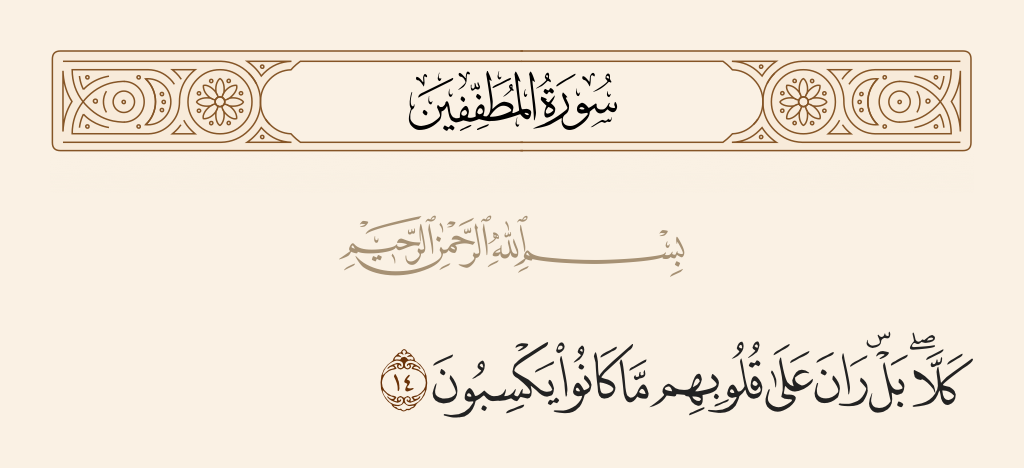 سُورَةُ المُطَفِّفِينَ
بِسْمِ ٱللَّهِ ٱلرَّحْمَٰنِ ٱلرَّحِيمِ
كَلَّاۖ بَلْۜ رَانَ عَلَىٰ قُلُوبِهِم مَّا كَانُوا۟ يَكْسِبُونَ ١٤